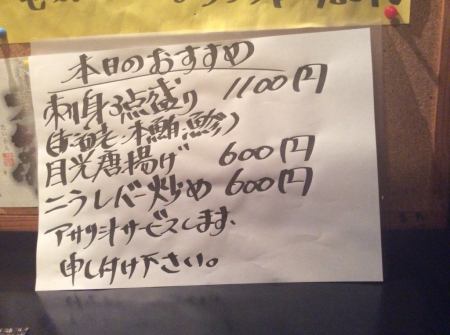 本日のおすすめ
刺身3点盛り 1100円
(甘海老、本鮪、鯵)
目光唐揚げ 600円
ニラレバー炒め 600円
アサリ汁サービスします、
申し付け下さい。